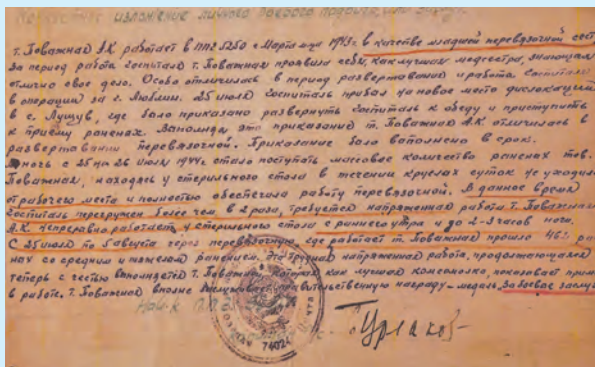 краткое изложение личного боевого подвига или заслуг
т. Поважная А.К работает в ППГ 5250 с Марта м-ца 1943г. в качестве младшей перевязочной сест
За период работы госпиталя т. Поважная проявила себя, как лучшая медсестра, знающая
отлично свое дело. Особо отличилась в период развертывания и работы госпиталя
в операции за г. Люблин. 25 июля госпиталь прибыл на новое место дислокации
в с. Лущув, где было приказано развернуть госпиталь к обеду и приступить
к приему раненых. Выполняя это приказание т. Поважная А.К отличилась в
развертывании перевязочной. Приказание было выполнено в срок.
В ночь с 25 на 26 июля 1944г стало поступать массовое количество раненых тов.
Поважная, находясь у стерильного стола в течении круглых суток не уходила
от рабочего места и полностью обеспечила работу перевязочной. В данное время
госпиталь перегружен более чем в 2 раза, требуется напряженная работа. т. Поважная
А.К. непрерывно работает у стерильного стола с раннего утра и до 2-3 часов ночи.
С 25 июля по 5 августа через перевязочную, где работает т. Поважная прошло 46% ра
ных со средним и тяжелым ранением. Эта трудная напряженная работа, продолжающаяся
теперь с честью выполняется т. Поважной, которая как лучшая комсомолка, показывает прим
в работе. т. Поважная вполне заслуживает правительственную награду - медаль За боевые заслуг
Нач-к ППГ
74024